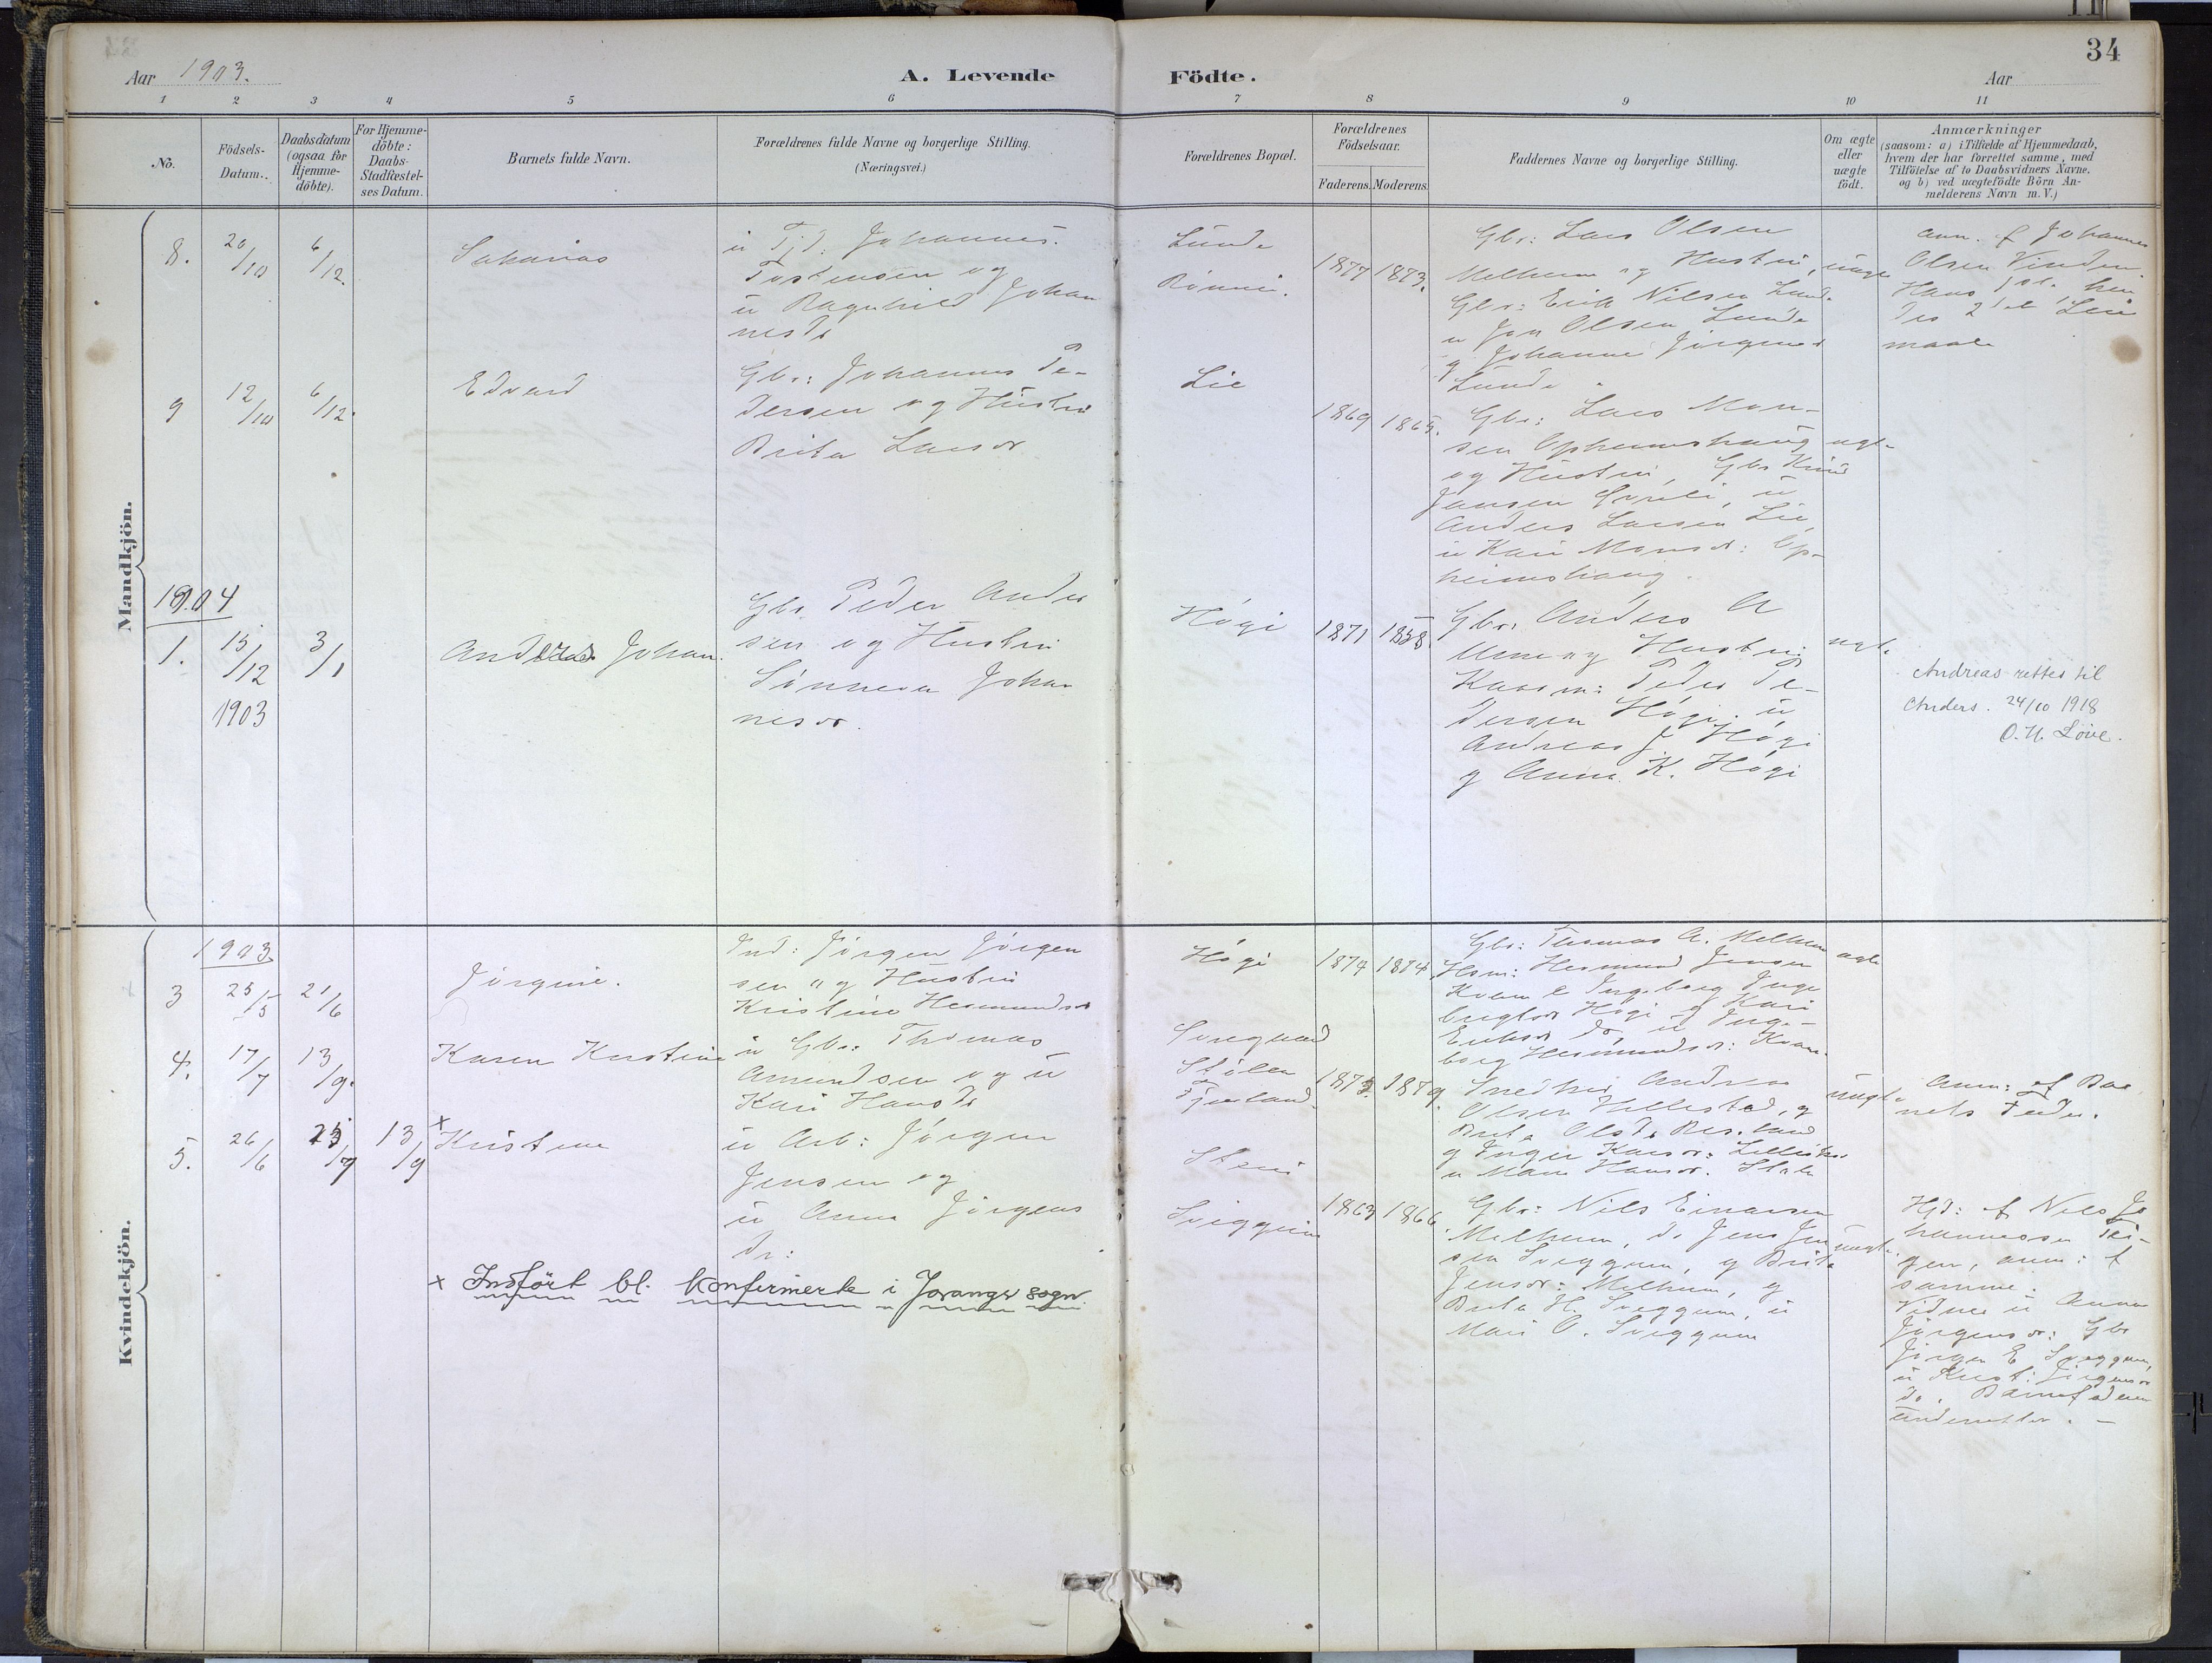 34
Aar 1903.
A. Levende
Födte.
Aar
1 2 3 4 5 6 7 8 9 10 11
No.
Födsels-
Datum.
Daabsdatum
(ogsaa for
Hjemme-
döbte).
For Hjemme-
döbte:
Daabs-
Stadfæstel-
ses Datum.
Barnets fulde Navn.
Forældrenes fulde Navne og borgerlige Stilling.
(Næringsvei.)
Forældrenes Bopæl.
Forældrenes
Födselsaar.
Faderens. Moderens.
Faddernes Navne og borgerlige Stilling.
Om ægte
eller
uægte
födt.
Anmærkninger
(saasom: a) i Tilfælde af Hjemmedaab,
hvem der har forrettet samme, med
Tilföielse af to Daabsvidners Navne.
og b) ved uægtefödte Börn An-
melderens Navn m. V.)
Mandkjön.
8.
20/10
6/12.
Sakarias
u Tjd: Johannes
Tostensen og
u Ragnhild Johan
nesdr
Lunde
1877 1873.
Gbr: Lars Olsen
Melheim og Hustru,
Gbr: Erik Nilsen Lund
u Jon Olsen Lunde
g Johanne Jörgensd
Lunde
uægt
anm. f Johannes
Olsen Vinden.
Hans 1st. hen
des 2det Leie
maal
9
12/10
6/12.
Edvard
Gbr: Johannes Pe-
dersen og Hustru
Brita Larsdr
Lie
1869 1865.
Gbr: Lars Mon-
sen Opheimshaug
og Hustru, Gbr Knud
Jansen
Anders Larsen Lie,
u Kari Monsdr: Op-
heimshaug.
ægt.
1904
1.
15/12
1903
3/1
Anders Johan.
Gbr Peder Ander
sen og Hustru
Sönneva Johan
nesdr.
Högi
1871 1858.
Gbr: Anders A
og Hustru
Peder Pe-
dersen Högi, u
Andreas J. Högi
g Anna K. Högi
ægt.
Andreas rettes til
Anders. 24/10 1918
O. H. Löve.
Kvindekjön.
1903.
3
25/5
21/6
Jörgine.
Ind: Jörgen Jörgen
sen og Hustru
Kristine Hermundsdr
Högi
1874 1874
Gbr: Thomas A. Melheim
Hsm: Hermund Jensen
Kvam & Ingeborg Inge
brigtsdr Högi g Kari
Eriksdr Do, u Inge-
borg Hermundsdr: Kvam.
ægte
4.
17/7
13/9.
Karen Kristine
u Gbr: Thomas
Amundsen og u
Kari Hansdr
Stölen
Fjærland.
1873. 1879.
Snedker Andreas
Olsen Hillestad, g
Brita Olsdr
g Inger
u Mari Hansdr.
uægt.
Anm: af Bar
nets Fader.
5.
26/6
13/9
x
Kristine
u Arb: Jörgen
Jensen og
u Anna Jörgens
dr:
Sveggum
1863 1866.
Gbr: Nils Einarsen
Melheim, do Jens Jen
sen Sveggum, g Brita
Jensdr: Melheim, g
Brita H. Sveggum, u
Mari O. Sveggum
uægt.
Hjd: f Nils Jo
hannessen Tei-
gen, anm: f
samme.
Vidner u Anna
Jörgensdr: Gbr
Jörgen E Sveggum,
u Krist: Jörgensdr
do. Barnefaderen
underrettet. —
x Indfört bl. konfirmerte i Joranger sogn.